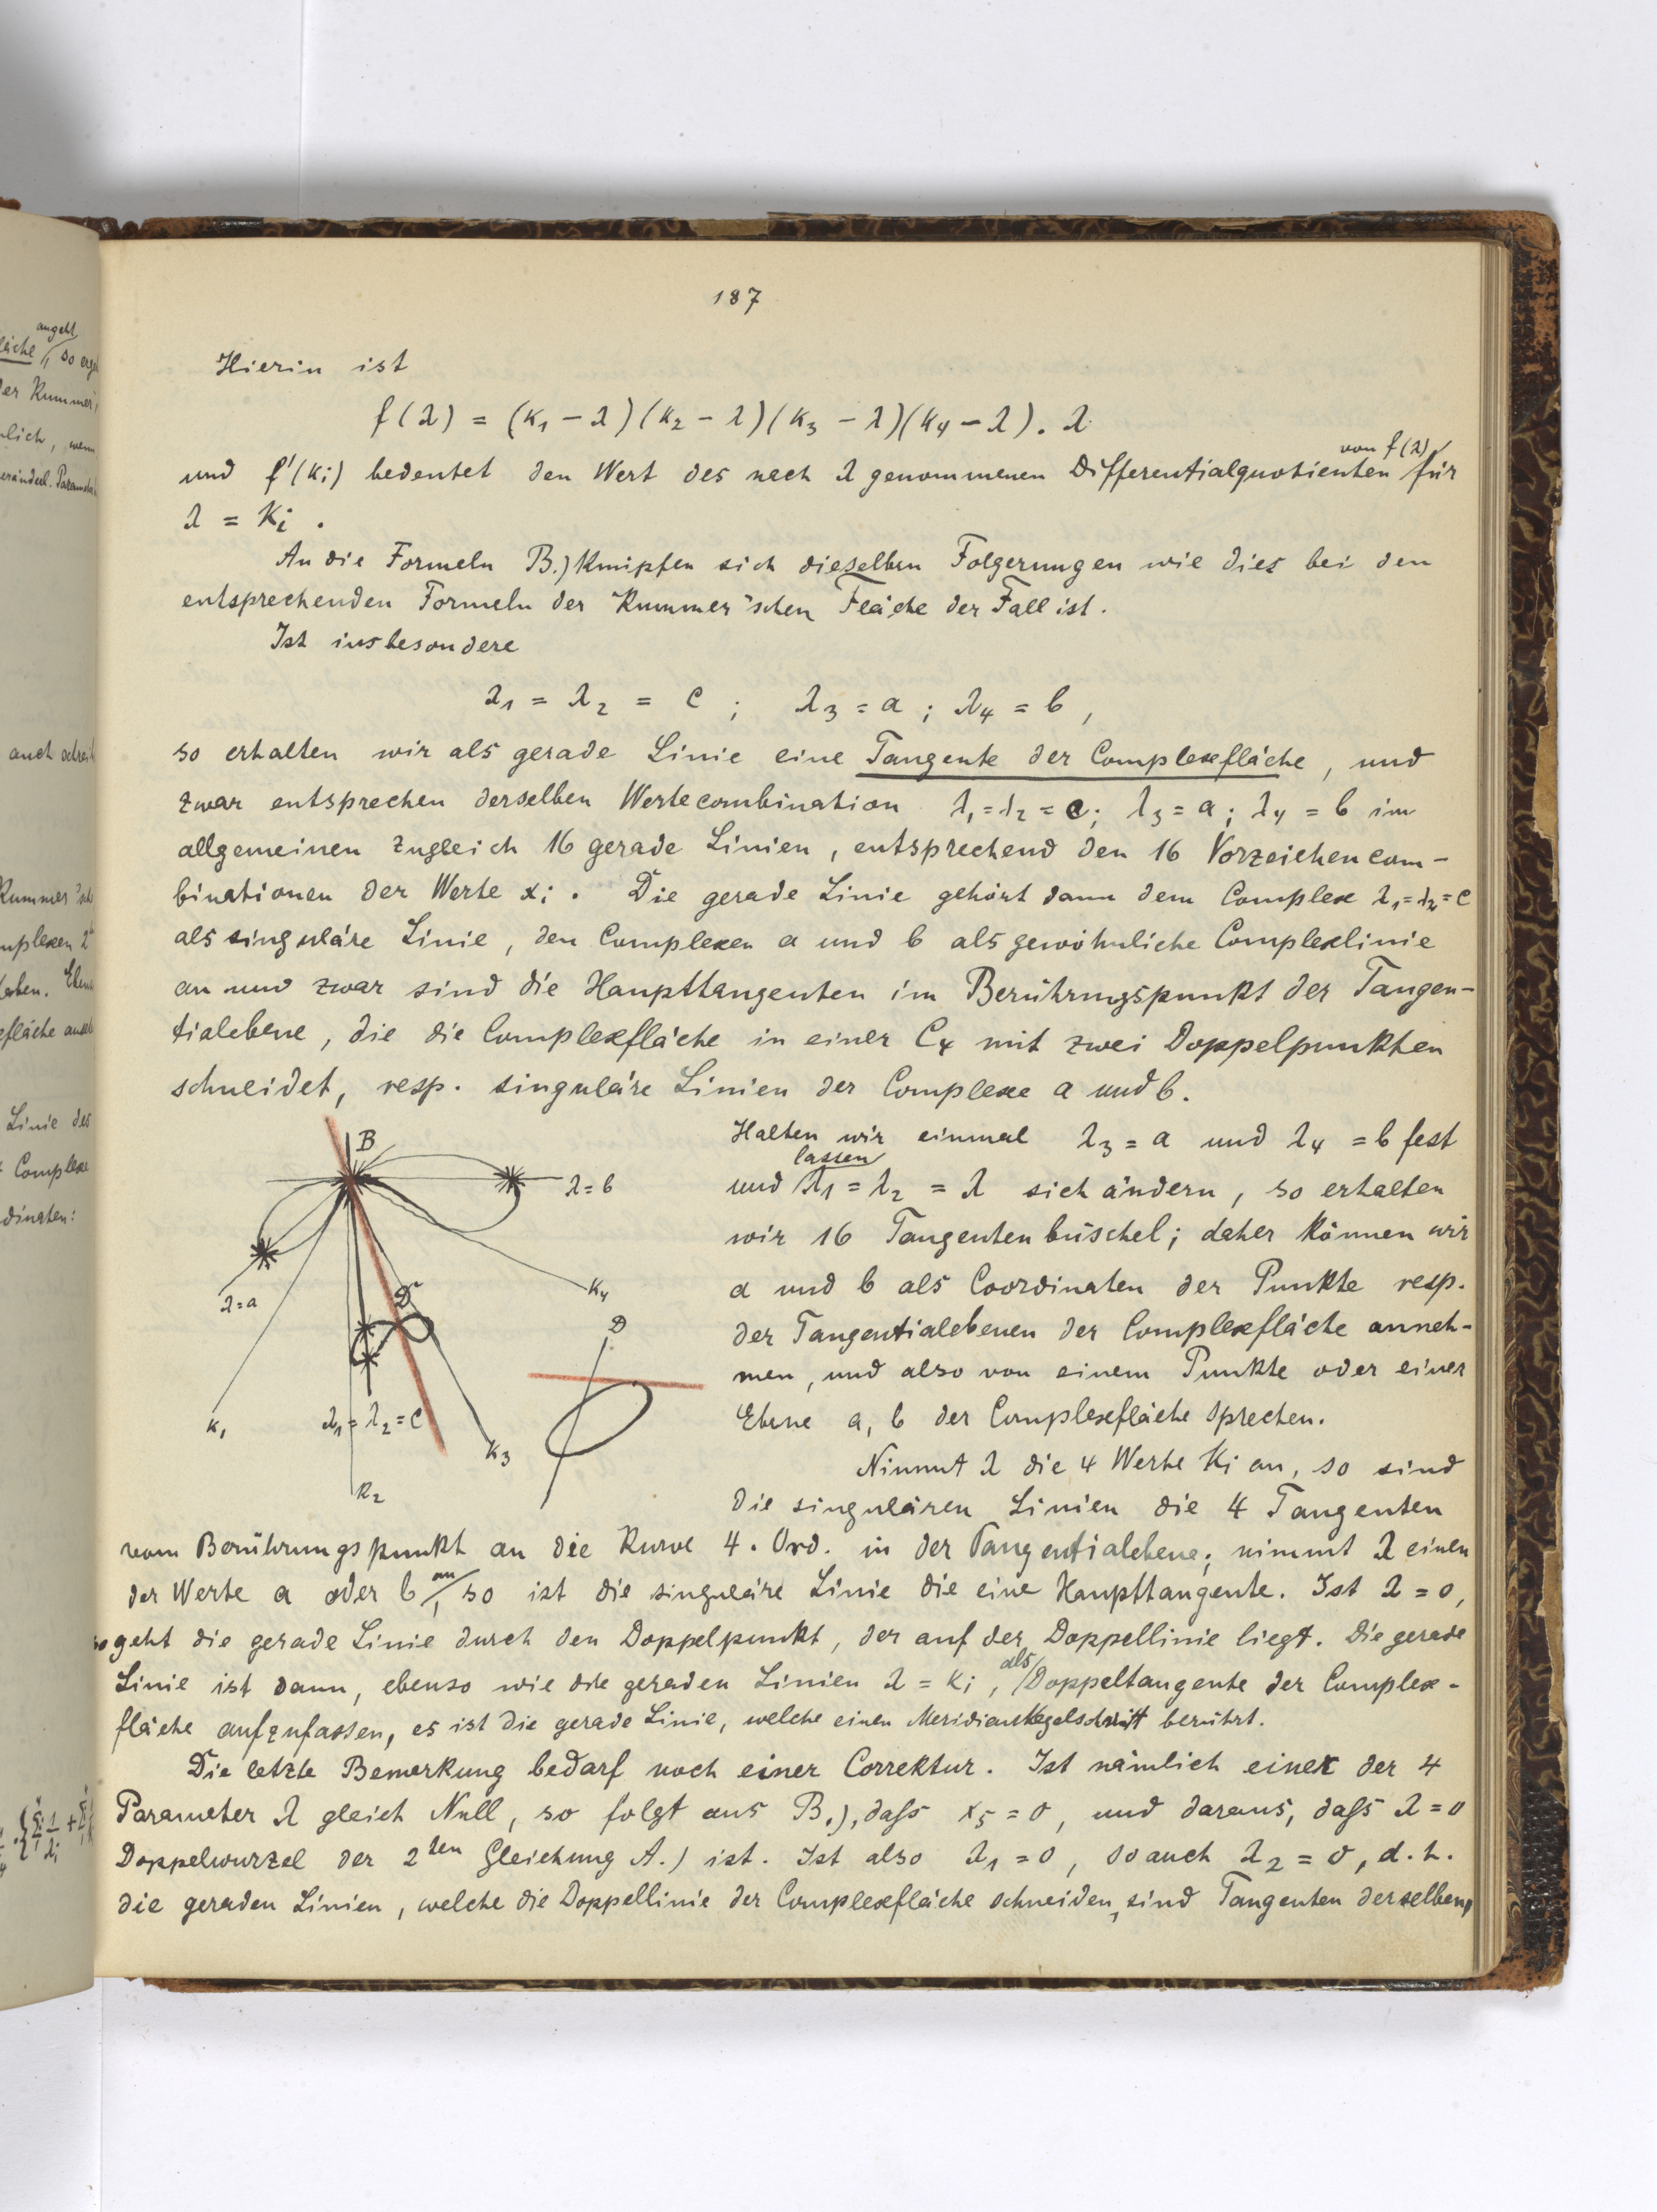 187
Hierin ist
f(λ) = (k₁ − λ)(k₂ − λ)(k₃ − λ)(k₄ − λ). λ
von f(λ)
und f'(ki) bedeutet den Wert des nach λ genommenen Differentialquotienten für
λ = Ki.
An die Formeln B.) knüpfen sich dieselben Folgerungen wie dies bei den
entsprechenden Formeln der Kummer'schen Fläche der Fall ist.
Ist insbesondere
λ₁ = λ₂ = c ; λ₃ = a ; λ₄ = b ,
so erhalten wir als gerade Linie eine Tangente der Complexfläche, und
zwar entsprechen derselben Wertecombination λ₁=λ₂=c; λ₃=a; λ₄=b im
allgemeinen zugleich 16 gerade Linien, entsprechend den 16 Vorzeichencom-
binationen der Werte xi. Die gerade Linie gehört dann dem Complex λ₁=λ₂=c
als singuläre Linie, den Complexen a und b als gewöhnliche Complexlinie
an und zwar sind die Haupttangenten im Berührungspunkt der Tangen-
tialebene, die die Complexfläche in einer C₄ mit zwei Doppelpunkten
schneidet, resp. singuläre Linien der Complexe a und b.
B
λ=b
λ=a
K₄
D
D
K₁
λ₁=λ₂=c
K₃
K₂
Halten wir einmal λ₃ = a und λ₄ = b fest
lassen
und λ₁ = λ₂ = λ sich ändern, so erhalten
wir 16 Tangentenbüschel; daher können wir
a und b als Coordinaten der Punkte resp.
der Tangentialebenen der Complexfläche anneh-
men, und also von einem Punkte oder einer
Ebene a, b der Complexfläche sprechen.
Nimmt λ die 4 Werte Ki an, so sind
die singulären Linien die 4 Tangenten
vom Berührungspunkt an die Kurve 4. Ord. in der Tangentialebene; nimmt λ einen
der Werte a oder b an, so ist die singuläre Linie die eine Haupttangente. Ist λ = 0,
so geht die gerade Linie durch den Doppelpunkt, der auf der Doppellinie liegt. Die gerade
Linie ist dann, ebenso wie die geraden Linien λ = ki, als Doppeltangente der Complex-
fläche aufzufassen, es ist die gerade Linie, welche einen Meridiankegelschnitt berührt.
Die letzte Bemerkung bedarf noch einer Correktur. Ist nämlich einer der 4
Parameter λ gleich Null, so folgt aus B.), daſs x₅ = 0, und daraus, daſs λ = 0
Doppelwurzel der 2ten Gleichung A.) ist. Ist also λ₁ = 0, so auch λ₂ = 0, d. h.
die geraden Linien, welche die Doppellinie der Complexfläche schneiden, sind Tangenten derselben,